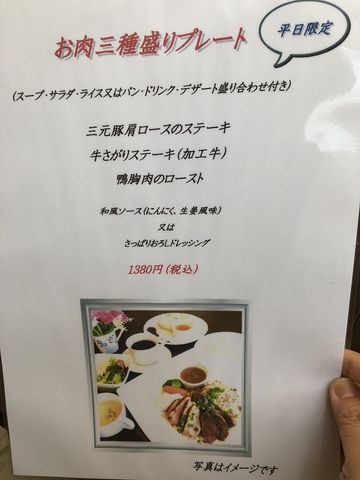 お肉三種盛りプレート
平日限定
(スープ・サラダ・ライス又はパン・ドリンク・デザート盛り合わせ付き)
三元豚肩ロースのステーキ
牛さがりステーキ(加工牛)
鴨胸肉のロースト
和風ソース(にんにく、生姜風味)
又は
さっぱりおろしドレッシング
1380円(税込)
写真はイメージです